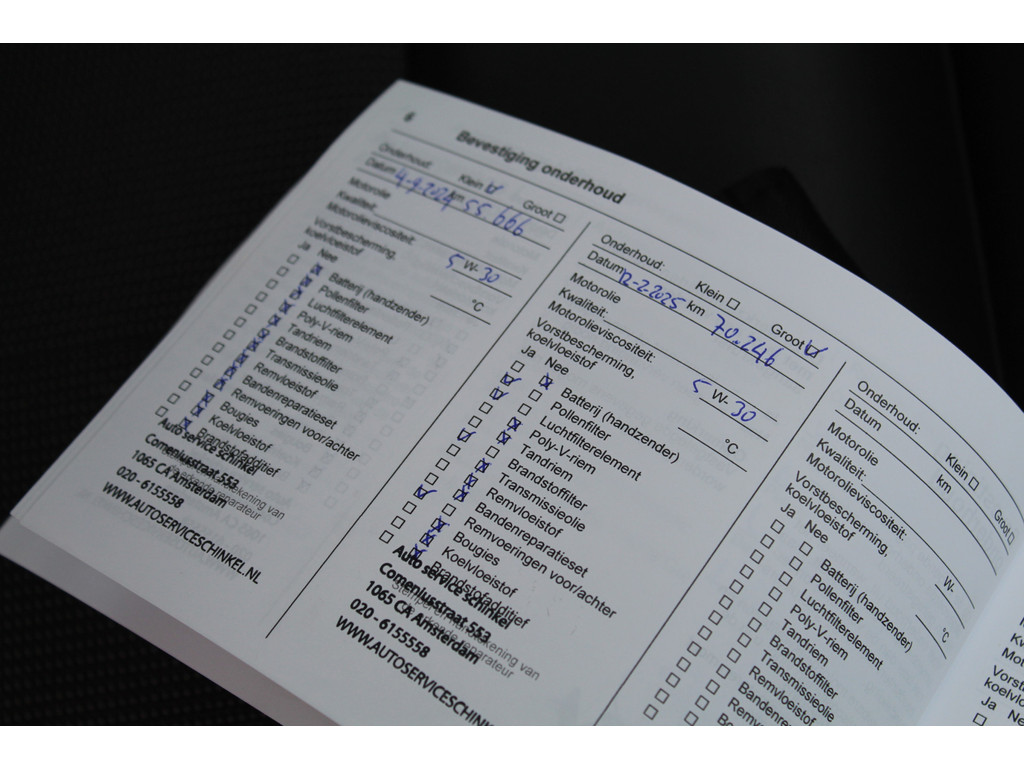 6
Bevestiging onderhoud
Onderhoud: Klein Groot
Datum 4-9-2024 km 55 666
Motorolie
Kwaliteit:
Motorolieviscositeit: 5 W- 30
Vorstbescherming,
koelvloeistof °C
Ja Nee
Batterij (handzender)
Pollenfilter
Luchtfilterelement
Poly-V-riem
Tandriem
Brandstoffilter
Transmissieolie
Remvloeistof
Bandenreparatieset
Remvoeringen voor/achter
Bougies
Koelvloeistof
Brandstofadditief
Auto service schinkel
Comeniusstraat 553
1065 CA Amsterdam
020 - 6155558
WWW.AUTOSERVICESCHINKEL.NL
Onderhoud: Klein Groot
Datum 12-2-2025 km 70.246
Motorolie
Kwaliteit:
Motorolieviscositeit: 5 W- 30
Vorstbescherming,
koelvloeistof °C
Ja Nee
Batterij (handzender)
Pollenfilter
Luchtfilterelement
Poly-V-riem
Tandriem
Brandstoffilter
Transmissieolie
Remvloeistof
Bandenreparatieset
Remvoeringen voor/achter
Bougies
Koelvloeistof
Brandstofadditief
Auto service schinkel
Comeniusstraat 553
1065 CA Amsterdam
020 - 6155558
WWW.AUTOSERVICESCHINK
Onderhoud: Klein Groot
Datum km
Motorolie
Kwaliteit:
Motorolieviscositeit: W-
Vorstbescherming,
koelvloeistof °C
Ja Nee
Batterij (handzender)
Pollenfilter
Luchtfilterelement
Poly-V-riem
Tandriem
Brandstoffilter
Transmissieolie
Remvloeistof
Bandenre
Remv